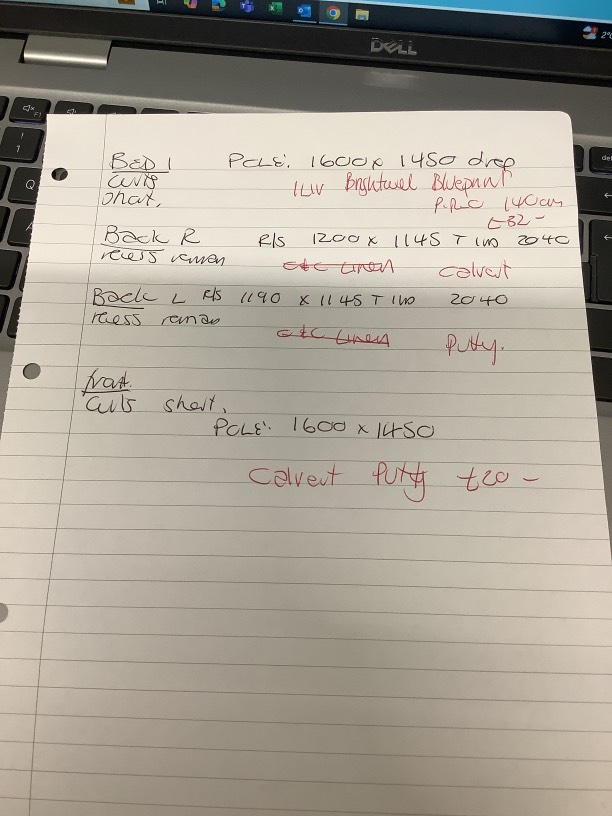 DELL
BED 1 POLE: 1600 x 1450 drop
Curts short, ILIV Brightwell Blueprint
P.R.C 140cm
£32-
Back R R/S 1200 x 1145 T 2040
recess C&C Linen Calvert
Back L R/S 1190 x 1145 T 2040
recess
C&C Linen Putty.
front.
Curts short,
POLE: 1600 x 1450
Calvert Putty £20-